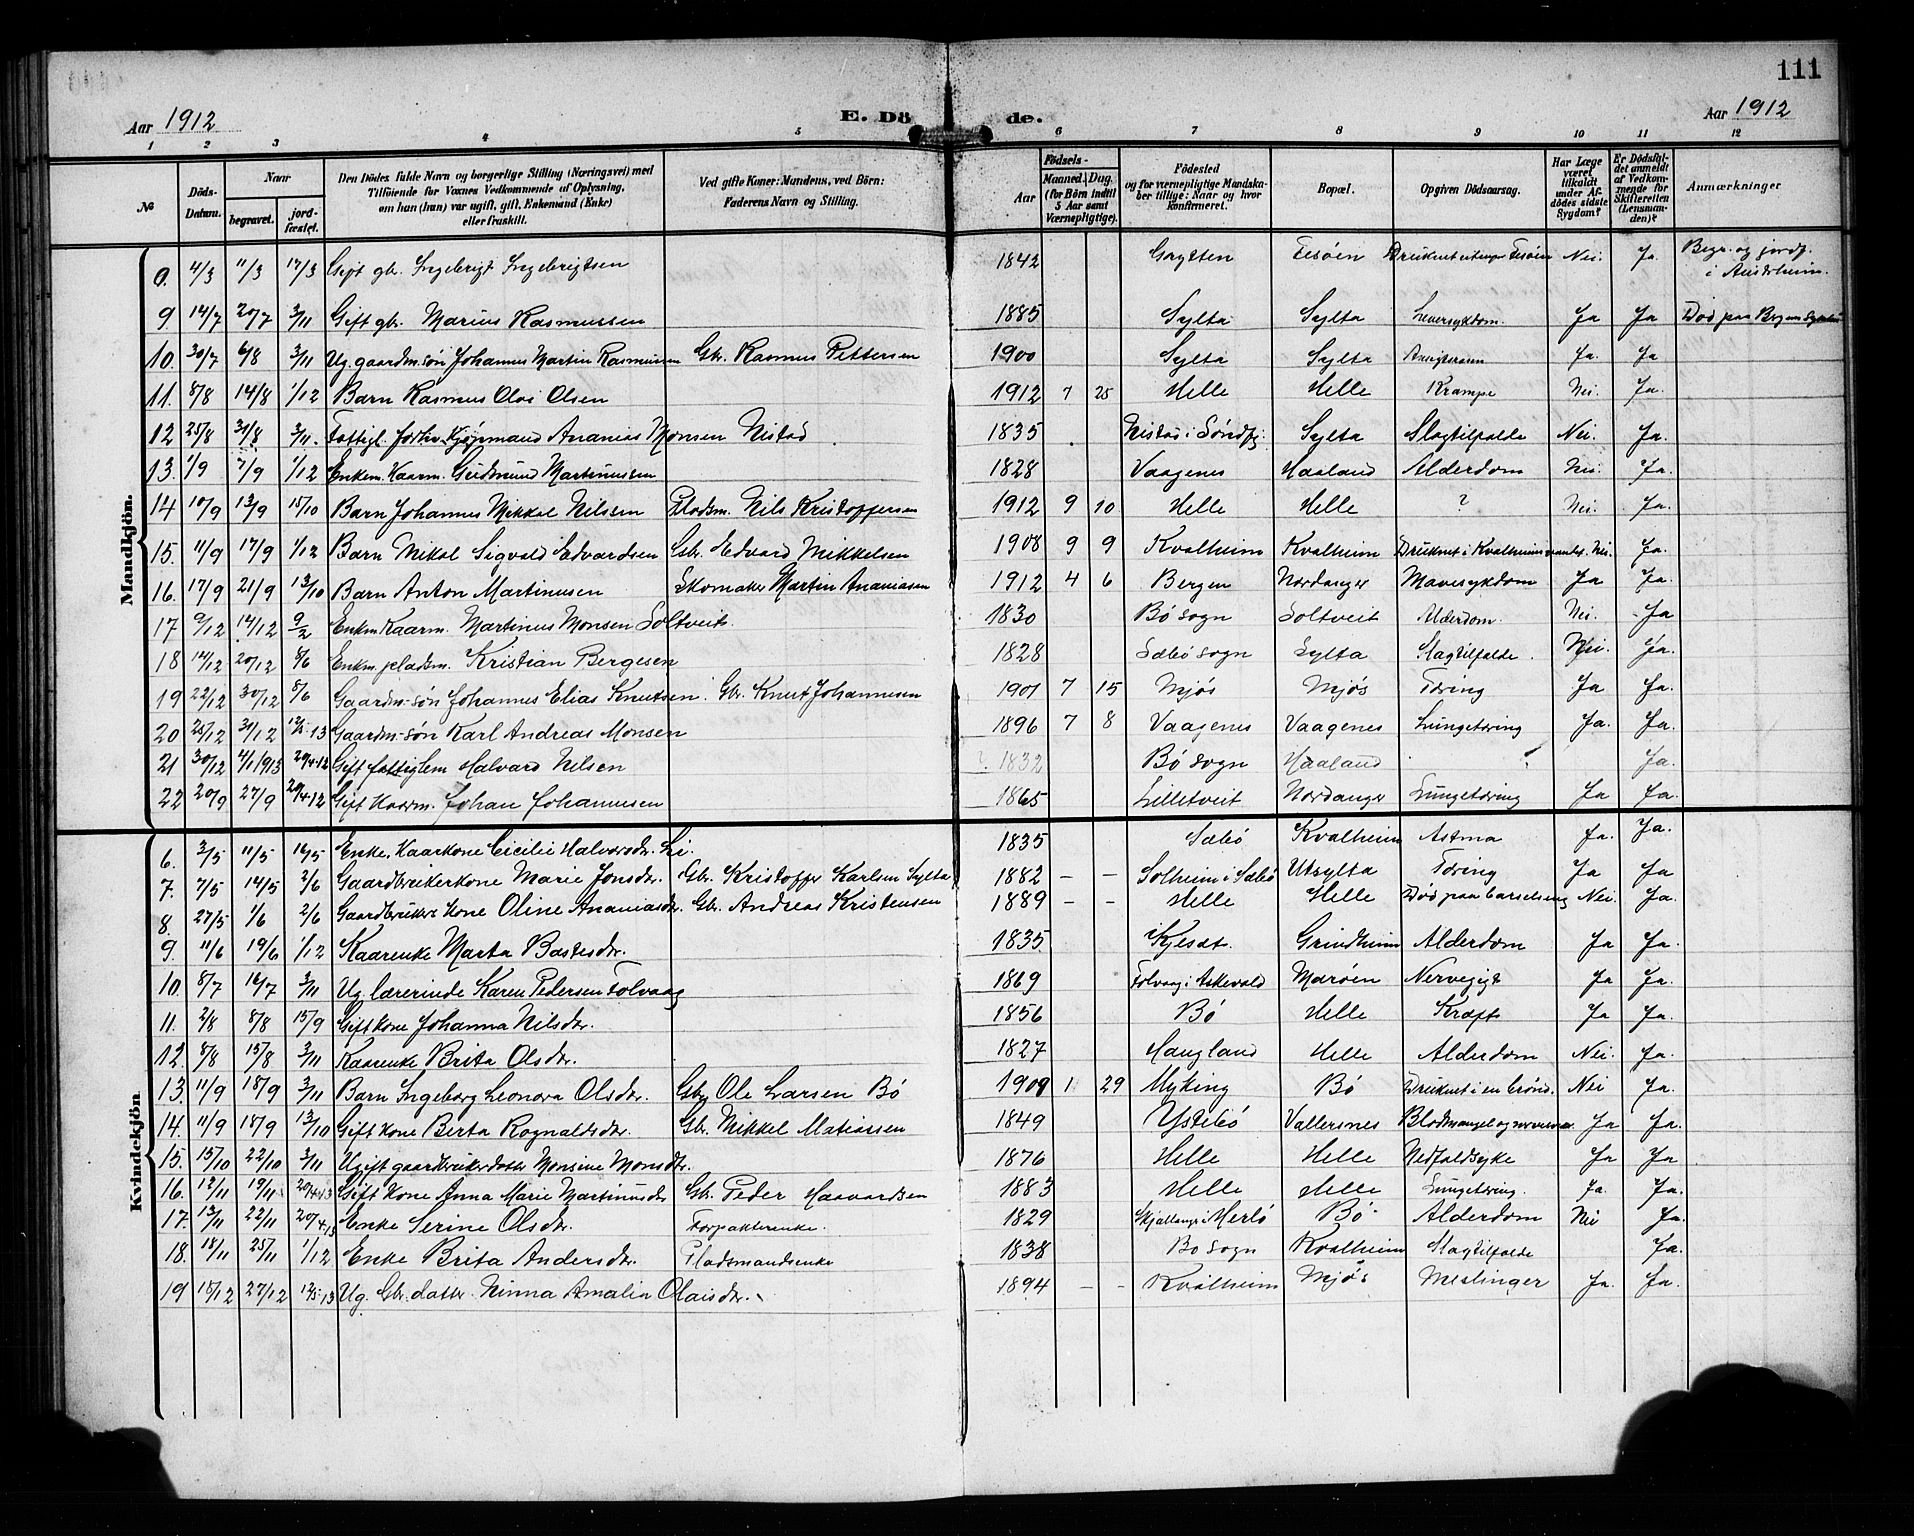 111
Aar 1912 E. Döde. Aar 1912
1 2 3 4 5 6 7 8 9 10 11 12
№
Döds-Datum.
Naar
begravet.
jordfæstet.
Den Dödes fulde Navn og borgerlige Stilling (Næringsvei) med
Tilföiende for Voxnes Vedkommende af Oplysning,
om han (hun) var ugift, gift, Enkemand (Enke)
eller fraskilt.
Ved gifte Koner: Mandens, ved Börn:
Faderens Navn og Stilling.
Födsels-
Aar
Maaned. Dag.
(for Börn indtil
5 Aar samt
Værnepligtige).
Födested
og for værnepligtige Mandskaber tillige: Naar og hvor
konfirmeret.
Bopæl.
Opgiven Dödsaarsag.
Har Læge
været
tilkaldt
under Afdödes sidste
Sygdom?
Er Dödsfaldet anmeldt
af Vedkommende for
Skifteretten
(Lensmanden)?
Anmærkninger
Mandkjön.
4/3 11/3 17/3 Gift gbr. Ingebrigt Ingebrigtsen 1842 Grytten Fesöen Druknet Fesöen Nei. Ja Begr. og jordf. i Austrheim.
9. 14/7 20/7 3/11 Gift gbr. Marius Rasmussen 1885 Sylta Sylta Leversykdom. Ja Ja Död paa
10. 30/7 6/8 3/11 Ug. gaardm.sön Johannes Martin Rasmussen Gbr. Rasmus Pettersen 1900 Sylta Sylta Ja. Ja
11. 8/8 14/8 1/12 Barn Rasmus Olai Olsen 1912 7 25 Helle Helle Krampe Nei. Ja.
12 25/8 31/8 3/11. Fattigl. forhv. Kjöpmand Ananias Monsen Nistad 1835 Nistad i Söndfj. Sylta Slagtilfalde Nei. Ja.
13. 1/9 7/9 1/12 Enkem. Kaarm. Gudmund Martinussen 1828 Vaagenes Haaland Alderdom Nei. Ja.
14 10/9 13/9 15/10 Barn Johannes Mikkal Nilsen Pladsm. Nils Kristoffersen 1912 9 10 Helle Helle ? Nei. Ja.
15. 11/9 17/9 1/12 Barn Mikal Sigvald Edvardsen Gbr. Edvard Mikkelsen 1908 9 9 Kvalheim Kvalheim Druknet i Kvalheimsvandet. Nei. Ja.
16. 17/9 21/9 13/10 Barn Anton Martinusen Skomaker Martin Ananiasen 1912 4 6 Bergen Nordanger Mavesykdom Ja Ja.
17 9/12 14/12 9/2 Enkm. Kaarm. Martinus Monsen Soltveit 1830 Bö sogn Soltveit Alderdom. Nei. Ja
18 14/12 20/12 8/6 Enkm. pladsm. Kristian Bergesen 1828 Sæbö sogn Sylta Slagtilfalde. Nei. Ja.
19 22/12 30/12 8/6 Gaardm-sön Johannes Elias Knutsen. Gbr. Knut Johannesen 1901 7 15 Mjös Mjös Tæring Ja Ja.
20 25/12 31/12 12/5-13 Gaardm-sön Karl Andreas Monsen 1896 7 8 Vaagenes Vaagenes Lungetæring Ja. Ja
21 30/12 4/1 1913 20/4-12 Gift fattiglem Halvard Nilsen 1832 Bö sogn Haaland Ja.
22 20/9 27/9 20/4 12 Gift Kaarm. Johan Johannesen 1865 Lilletveit Nordanger Lungetæring Ja Ja.
Kvindekjön
6. 3/5 11/5 16/5 Enke. Kaarkone Cicilie Halvorsdr. Li. 1835 Sæbö Kvalheim Astma Ja. Ja.
7. 7/5 14/5 2/6 Gaardbrukerkone Marie Jonsdr. Gbr. Kristoffer Karlsen Sylta 1882 – – Solheim i Sæbö Utsylta Tæring Ja Ja
8. 27/5 1/6 2/6 Gaardbruker Kone Oline Ananiasdr. Gbr. Andreas Kristensen 1889 – – Helle Helle Död paa barselseng Nei. Ja.
9 11/6 19/6 1/12 Kaarenke Marta Bastesdr. 1835. Grindheim Alderdom Ja Ja.
10. 8/7 16/7 3/11 Ug. lærerinde Karen Pedersen Tolvaag 1869 Tolvaag i Askevold Maröen Nervegigt Ja Ja.
11. 2/8 8/8 15/9 Gift kone Johanna Nilsdr. 1856 Bö Helle Kræft Ja Ja.
12 8/8 15/8 3/11 Kaarenke Brita Olsdr. 1827 Haugland Helle Alderdom Nei. Ja.
13. 11/9 18/9 3/11 Barn Ingeborg Leonora Olsdr. Gbr. Ole Larsen Bö 1909 1 29 Myking Bö Druknet i en brönd. Nei Ja.
14. 11/9 18/9 13/10 Gift kone Berta Rognaldsdr. Gbr. Mikkel Matiassen 1849 Ystebö Vallersnes Blodmangel og Ja Ja.
15. 15/10 22/10 3/11 Ugift gaardbrukerdatter Monsine Monsdr. 1876 Helle Helle Nedfaldsyke Ja Ja
16. 12/11 19/11 20/4-13 Gift Kone Anna Marie Martinusdr. Gbr. Peder Haavardsen 1883 Helle Helle Lungetæring. Ja. Ja.
17. 13/11 22/11 20/4 13 Enke Serine Olsdr. Forpakterenke. 1829 i Herlö Bö Alderdom Nei Ja.
18. 18/11 25/11 1/12 Enke Brita Andersdr. Pladsmandsenke 1838 Bö sogn Kvalheim Slagtilfalde Ja.
19 15/12 27/12 12/5-13 Ug. Gbr. datter Ninna Amalia Olaisdr. 1894 – – Kvalheim Mjös Meslinger Ja. Ja.